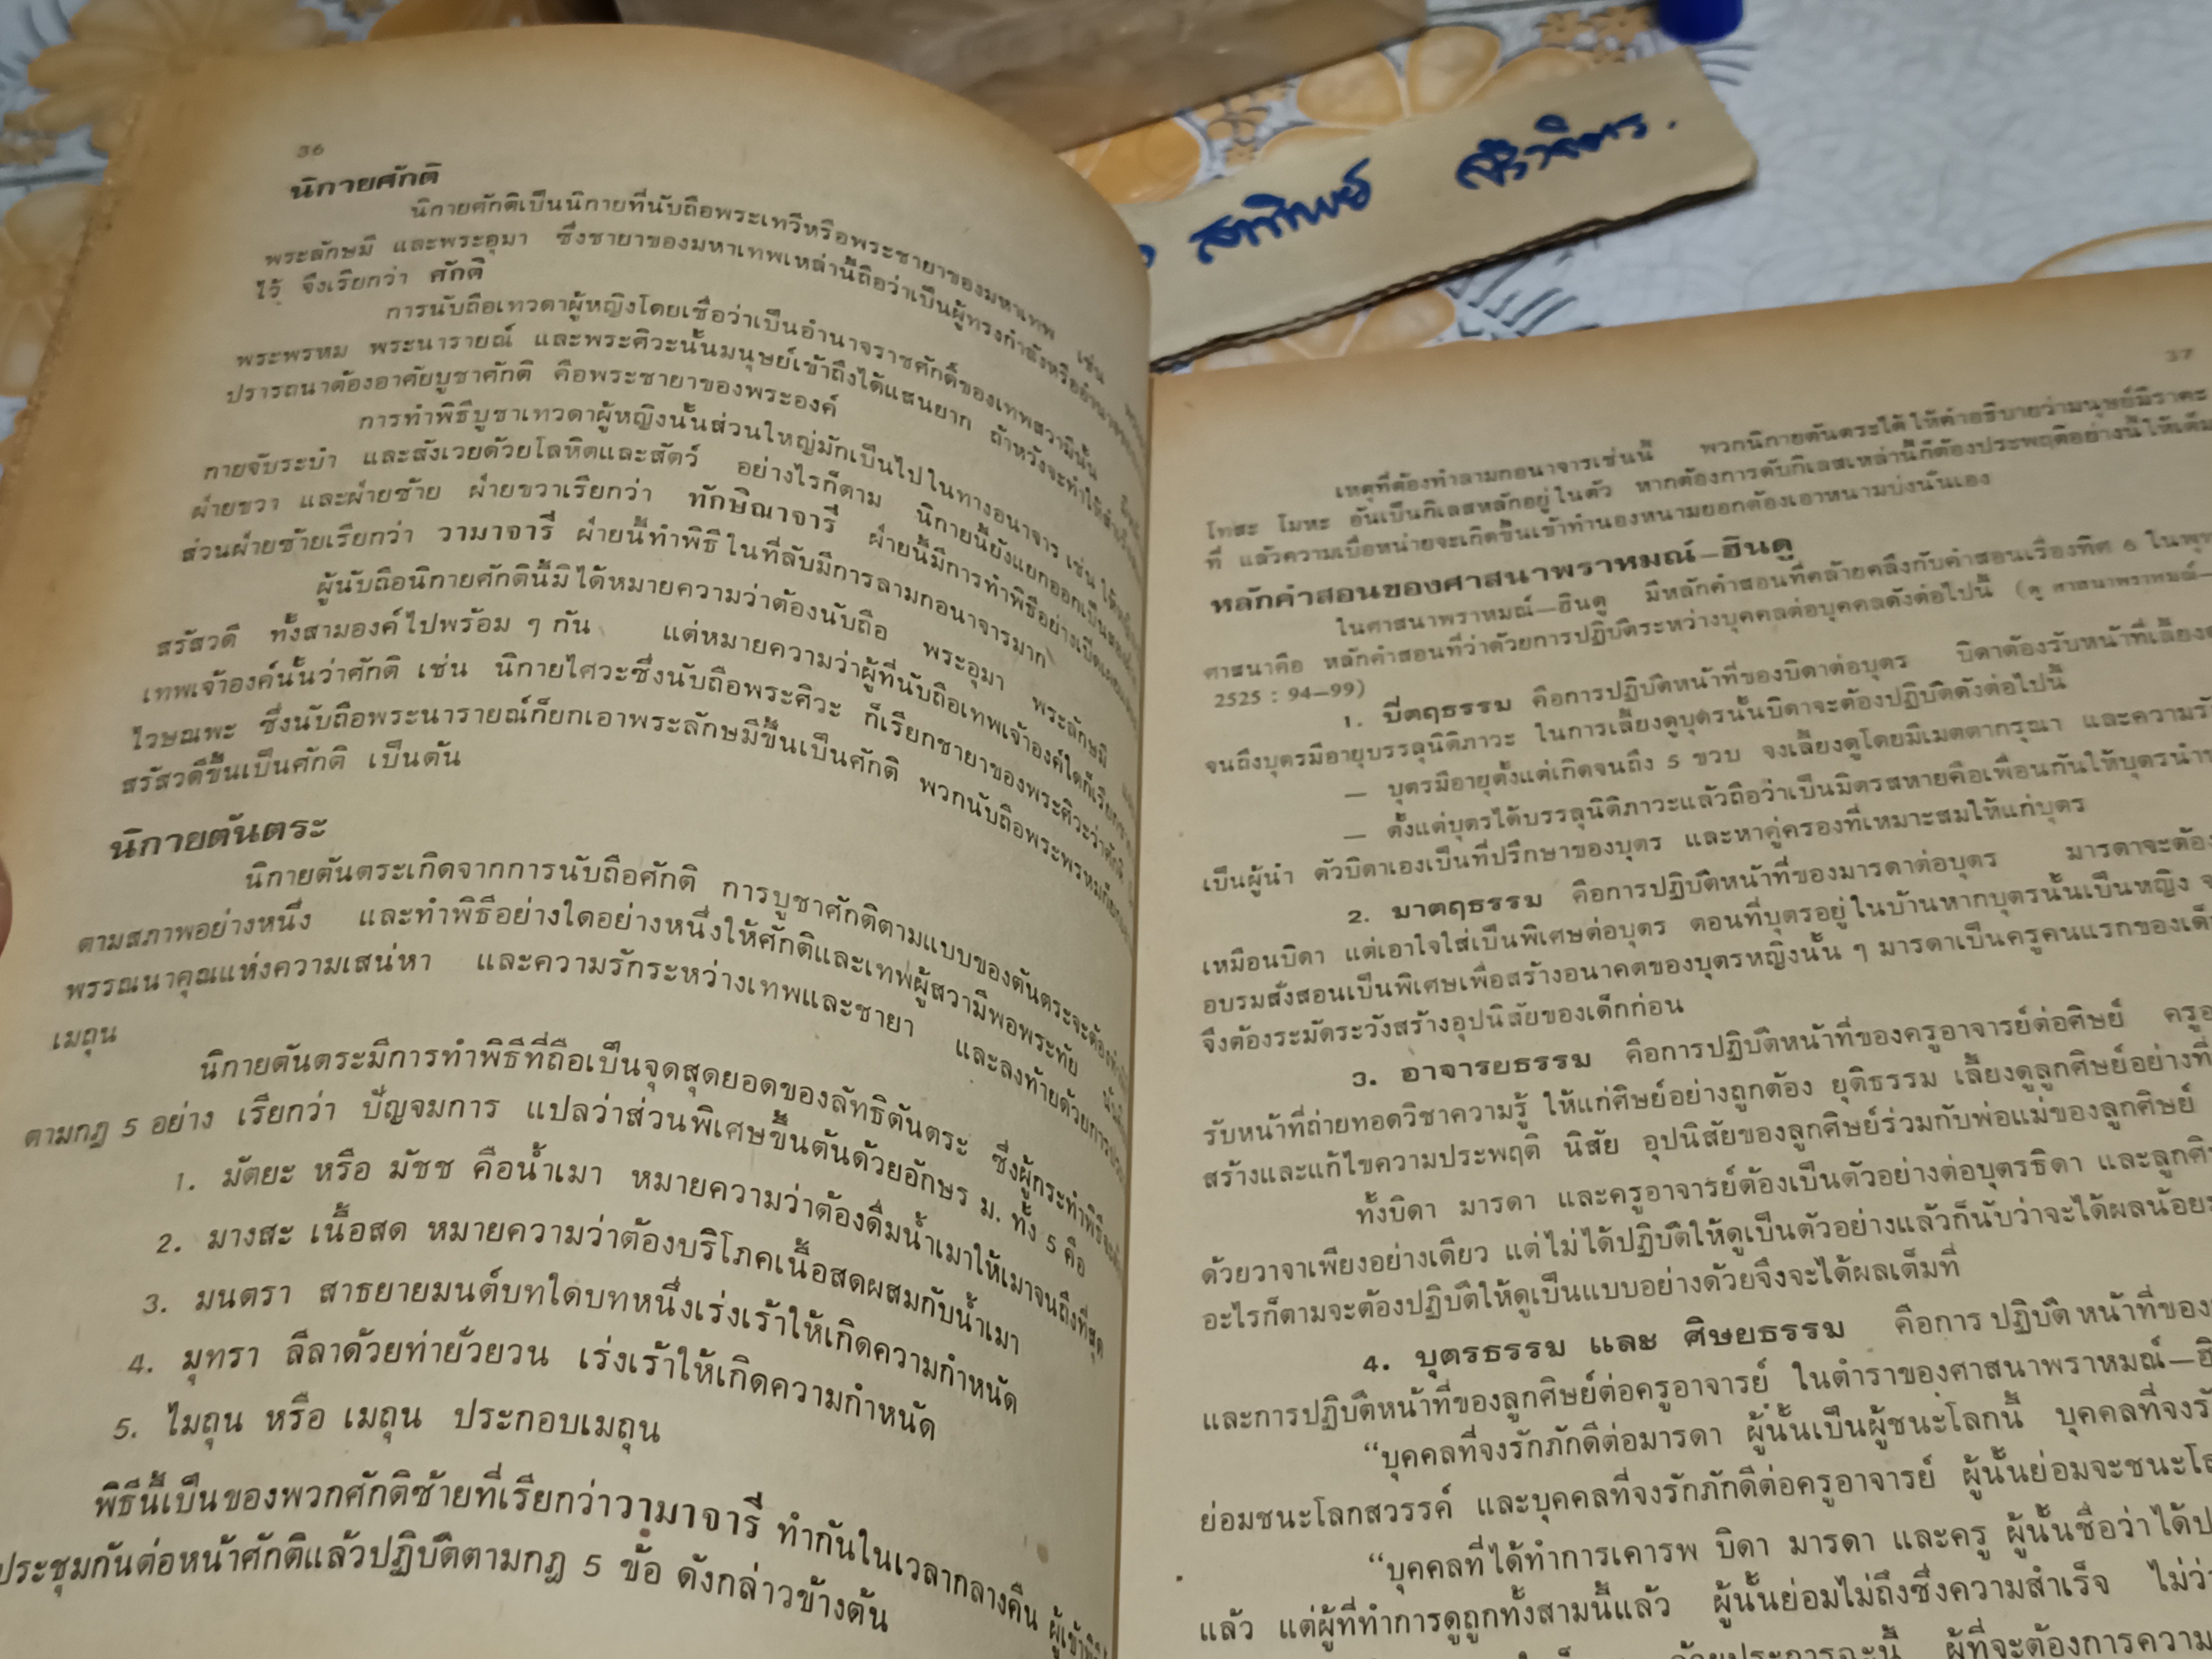 36
นิกายศักติ
นิกายศักติเป็นนิกายที่นับถือพระเทวีหรือพระชายาของมหาเทพ เช่น
พระลักษมี และพระอุมา ซึ่งชายาของมหาเทพเหล่านี้ถือว่าเป็นผู้ทรงกำลังหรืออำนาจ
ไว้ จึงเรียกว่า ศักติ
การนับถือเทวดาผู้หญิงโดยเชื่อว่าเป็นอำนาจราชศักดิ์ของเทพสวามีนั้น
พระพรหม พระนารายณ์ และพระศิวะนั้นมนุษย์เข้าถึงได้แสนยาก ถ้าหวังจะทำให้
ปรารถนาต้องอาศัยบูชาศักติ คือพระชายาของพระองค์
การทำพิธีบูชาเทวดาผู้หญิงนั้นส่วนใหญ่มักเป็นไปในทางอนาจาร เช่น
กายจับระบำ และสังเวยด้วยโลหิตและสัตว์ อย่างไรก็ตาม นิกายนี้ยังแยกออกเป็น
ฝ่ายขวา และฝ่ายซ้าย ฝ่ายขวาเรียกว่า ทักษิณาจารี ฝ่ายนี้มีการทำพิธีอย่างเปิดเผย
ส่วนฝ่ายซ้ายเรียกว่า วามาจารี ฝ่ายนี้ทำพิธีในที่ลับมีการลามกอนาจารมาก
ผู้นับถือนิกายศักตินี้มิได้หมายความว่าต้องนับถือ พระอุมา พระลักษมี
สรัสวดี ทั้งสามองค์ไปพร้อม ๆ กัน แต่หมายความว่าผู้ที่นับถือเทพเจ้าองค์ใดก็เรียก
เทพเจ้าองค์นั้นว่าศักติ เช่น นิกายไศวะซึ่งนับถือพระศิวะ ก็เรียกชายาของพระศิวะว่าศักติ
ไวษณพะ ซึ่งนับถือพระนารายณ์ก็ยกเอาพระลักษมีขึ้นเป็นศักติ พวกนับถือพระพรหม
สรัสวดีขึ้นเป็นศักติ เป็นต้น
นิกายตันตระ
นิกายตันตระเกิดจากการนับถือศักติ การบูชาศักติตามแบบของตันตระจะต้อง
ตามสภาพอย่างหนึ่ง และทำพิธีอย่างใดอย่างหนึ่งให้ศักติและเทพผู้สวามีพอพระทัย
พรรณนาคุณแห่งความเสน่หา และความรักระหว่างเทพและชายา และลงท้ายด้วยการ
เมถุน
นิกายตันตระมีการทำพิธีที่ถือเป็นจุดสุดยอดของลัทธิตันตระ ซึ่งผู้กระทำพิธี
ตามกฎ 5 อย่าง เรียกว่า ปัญจมการ แปลว่าส่วนพิเศษขึ้นต้นด้วยอักษร ม. ทั้ง 5 คือ
1. มัตยะ หรือ มัชช คือน้ำเมา หมายความว่าต้องดื่มน้ำเมาให้เมาจนถึงที่สุด
2. มางสะ เนื้อสด หมายความว่าต้องบริโภคเนื้อสดผสมกับน้ำเมา
3. มนตรา สาธยายมนต์บทใดบทหนึ่งเร่งเร้าให้เกิดความกำหนัด
4. มุทรา ลีลาด้วยท่ายั่วยวน เร่งเร้าให้เกิดความกำหนัด
5. ไมถุน หรือ เมถุน ประกอบเมถุน
พิธีนี้เป็นของพวกศักติซ้ายที่เรียกว่าวามาจารี ทำกันในเวลากลางคืน ผู้เข้าพิธี
ประชุมกันต่อหน้าศักติแล้วปฏิบัติตามกฎ 5 ข้อ ดังกล่าวข้างต้น
37
เหตุที่ต้องทำลามกอนาจารเช่นนี้ พวกนิกายตันตระได้ให้คำอธิบายว่ามนุษย์มีราคะ
โทสะ โมหะ อันเป็นกิเลสหลักอยู่ในตัว หากต้องการดับกิเลสเหล่านี้ก็ต้องประพฤติอย่างนี้ให้เต็ม
ที่ แล้วความเบื่อหน่ายจะเกิดขึ้นเข้าทำนองหนามยอกต้องเอาหนามบ่งนั่นเอง
หลักคำสอนของศาสนาพราหมณ์–ฮินดู
ในศาสนาพราหมณ์–ฮินดู มีหลักคำสอนที่คล้ายคลึงกับคำสอนเรื่องทิศ 6 ในพุทธ
ศาสนาคือ หลักคำสอนที่ว่าด้วยการปฏิบัติระหว่างบุคคลต่อบุคคลดังต่อไปนี้ (ดู ศาสนาพราหมณ์–
2525 : 94–99)
1. ปีตฤธรรม คือการปฏิบัติหน้าที่ของบิดาต่อบุตร บิดาต้องรับหน้าที่เลี้ยงดู
จนถึงบุตรมีอายุบรรลุนิติภาวะ ในการเลี้ยงดูบุตรนั้นบิดาจะต้องปฏิบัติดังต่อไปนี้
– บุตรมีอายุตั้งแต่เกิดจนถึง 5 ขวบ จงเลี้ยงดูโดยมีเมตตากรุณา และความรัก
– ตั้งแต่บุตรได้บรรลุนิติภาวะแล้วถือว่าเป็นมิตรสหายคือเพื่อนกันให้บุตรนำ
เป็นผู้นำ ตัวบิดาเองเป็นที่ปรึกษาของบุตร และหาคู่ครองที่เหมาะสมให้แก่บุตร
2. มาตฤธรรม คือการปฏิบัติหน้าที่ของมารดาต่อบุตร มารดาจะต้อง
เหมือนบิดา แต่เอาใจใส่เป็นพิเศษต่อบุตร ตอนที่บุตรอยู่ในบ้านหากบุตรนั้นเป็นหญิง
อบรมสั่งสอนเป็นพิเศษเพื่อสร้างอนาคตของบุตรหญิงนั้น ๆ มารดาเป็นครูคนแรกของเด็ก
จึงต้องระมัดระวังสร้างอุปนิสัยของเด็กก่อน
3. อาจารยธรรม คือการปฏิบัติหน้าที่ของครูอาจารย์ต่อศิษย์
รับหน้าที่ถ่ายทอดวิชาความรู้ ให้แก่ศิษย์อย่างถูกต้อง ยุติธรรม เลี้ยงดูลูกศิษย์อย่างที่
สร้างและแก้ไขความประพฤติ นิสัย อุปนิสัยของลูกศิษย์ร่วมกับพ่อแม่ของลูกศิษย์
ทั้งบิดา มารดา และครูอาจารย์ต้องเป็นตัวอย่างต่อบุตรธิดา และลูกศิษย์
ด้วยวาจาเพียงอย่างเดียว แต่ไม่ได้ปฏิบัติให้ดูเป็นตัวอย่างแล้วก็นับว่าจะได้ผลน้อย
อะไรก็ตามจะต้องปฏิบัติให้ดูเป็นแบบอย่างด้วยจึงจะได้ผลเต็มที่
4. บุตรธรรม และ ศิษยธรรม คือการปฏิบัติหน้าที่ของ
และการปฏิบัติหน้าที่ของลูกศิษย์ต่อครูอาจารย์ ในตำราของศาสนาพราหมณ์–
“บุคคลที่จงรักภักดีต่อมารดา ผู้นั้นเป็นผู้ชนะโลกนี้ บุคคลที่จงรัก
ย่อมชนะโลกสวรรค์ และบุคคลที่จงรักภักดีต่อครูอาจารย์ ผู้นั้นย่อมจะชนะโลก
“บุคคลที่ได้ทำการเคารพ บิดา มารดา และครู ผู้นั้นชื่อว่าได้
แล้ว แต่ผู้ที่ทำการดูถูกทั้งสามนี้แล้ว ผู้นั้นย่อมไม่ถึงซึ่งความสำเร็จ ไม่ว่า
ด้วยประการฉะนี้ ผู้ที่จะต้องการความ